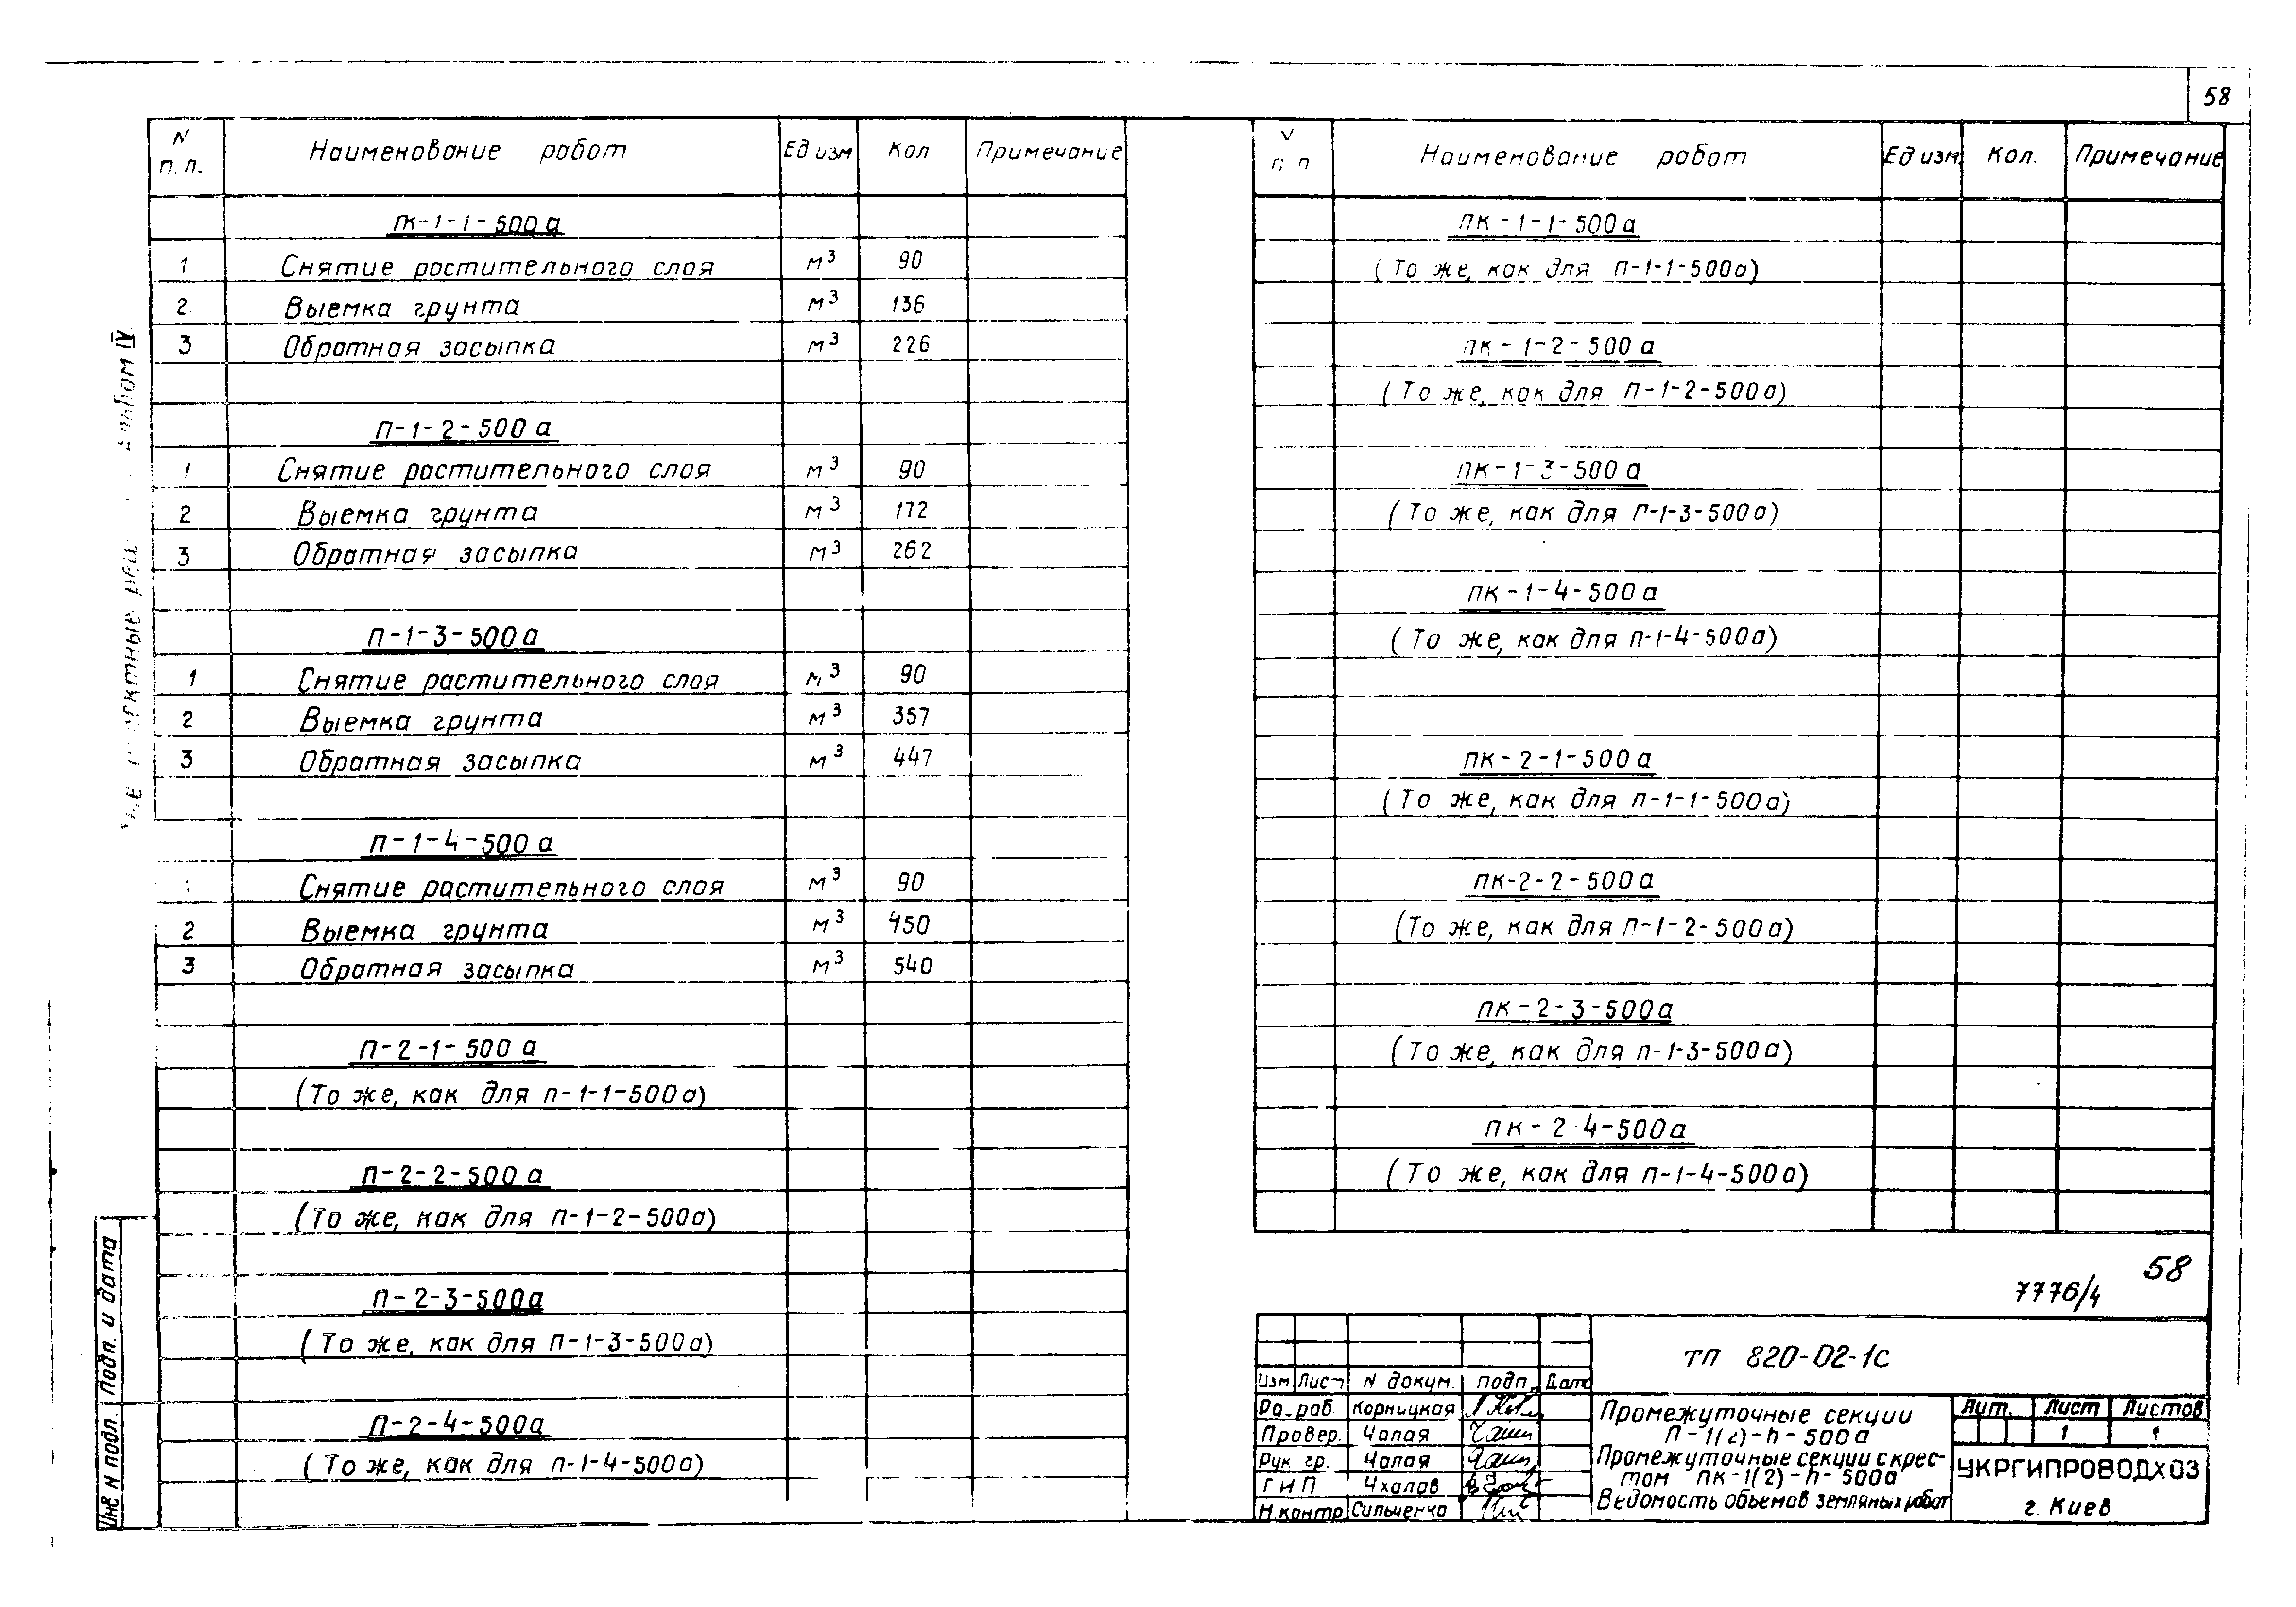 58
N п.п. Наименование работ Ед.изм Кол Примечание
ПК-1-1-500а
1 Снятие растительного слоя м³ 90
2 Выемка грунта м³ 136
3 Обратная засыпка м³ 226
П-1-2-500а
1 Снятие растительного слоя м³ 90
2 Выемка грунта м³ 172
3 Обратная засыпка м³ 262
П-1-3-500а
1 Снятие растительного слоя м³ 90
2 Выемка грунта м³ 357
3 Обратная засыпка м³ 447
П-1-4-500а
1 Снятие растительного слоя м³ 90
2 Выемка грунта м³ 450
3 Обратная засыпка м³ 540
П-2-1-500а
(То же, как для п-1-1-500а)
П-2-2-500а
(То же, как для п-1-2-500а)
П-2-3-500а
(То же, как для п-1-3-500а)
П-2-4-500а
(То же, как для п-1-4-500а)
п п Наименование работ Ед изм. Кол. Примечание
ПК-1-1-500а
(То же, как для п-1-1-500а)
ПК-1-2-500а
(То же, как для п-1-2-500а)
ПК-1-3-500а
(То же, как для П-1-3-500а)
ПК-1-4-500а
(То же, как для п-1-4-500а)
ПК-2-1-500а
(То же, как для п-1-1-500а)
ПК-2-2-500а
(То же, как для п-1-2-500а)
ПК-2-3-500а
(То же, как для п-1-3-500а)
ПК-2 4-500а
(То же, как для п-1-4-500а)
58
7776/4
ТП 820-02-1с
Изм Лист N докум. подп. Дата
Ра-раб. Корницкая
Провер. Чалая
Рук гр. Чалая
ГИП Чхалов
Н.контр Сильченко
Промежуточные секции
П-1(2)-h-500а
Промежуточные секции с крес-
том ПК-1(2)-h-500а
Ведомость объемов земляных работ
Лит. Лист Листов
1 1
УКРГИПРОВОДХОЗ
г. Киев
Альбом IV
Инв N подл. Подп. и дата